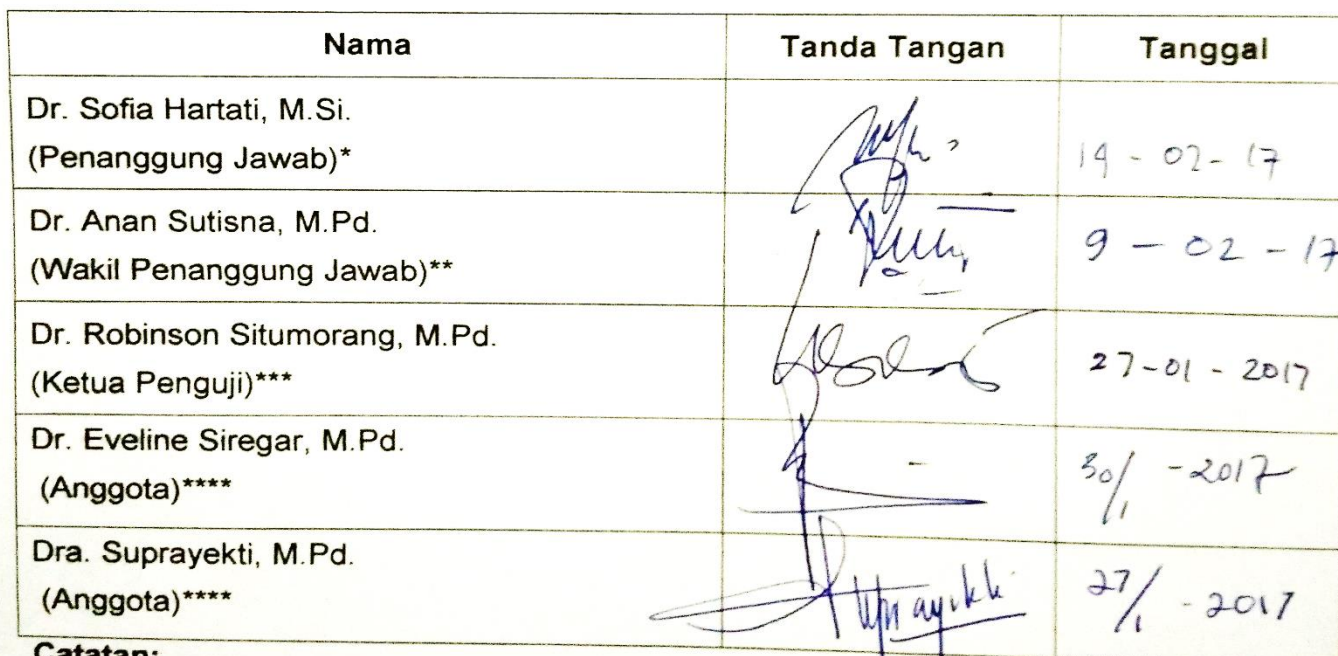 Nama Tanda Tangan Tanggal
Dr. Sofia Hartati, M.Si.
(Penanggung Jawab)* 14 - 02 - 17
Dr. Anan Sutisna, M.Pd.
(Wakil Penanggung Jawab)** 9 - 02 - 17
Dr. Robinson Situmorang, M.Pd.
(Ketua Penguji)*** 27-01-2017
Dr. Eveline Siregar, M.Pd.
(Anggota)**** 30/1 -2017
Dra. Suprayekti, M.Pd.
(Anggota)**** Suprayekti 27/1 -2017
Catatan: